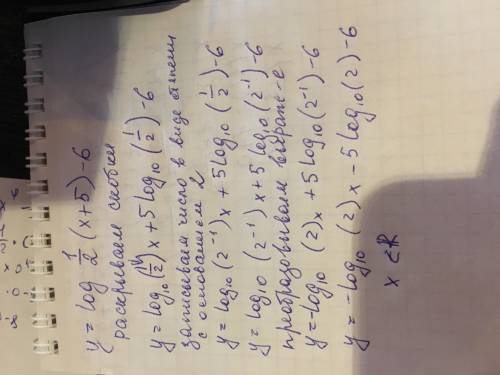 y = log 1/2 (x+5) - 6
раскрываем скобки
y = log₁₀(1/2)x + 5 log₁₀(1/2) - 6
записываем число в виде степени
с основанием 2
y = log₁₀(2⁻¹)x + 5 log₁₀(1/2) - 6
y = log₁₀(2⁻¹)x + 5 log₁₀(2⁻¹) - 6
преобразовываем выраже-е
y = -log₁₀(2)x + 5 log₁₀(2⁻¹) - 6
y = -log₁₀(2)x - 5 log₁₀(2) - 6
x ∈ R